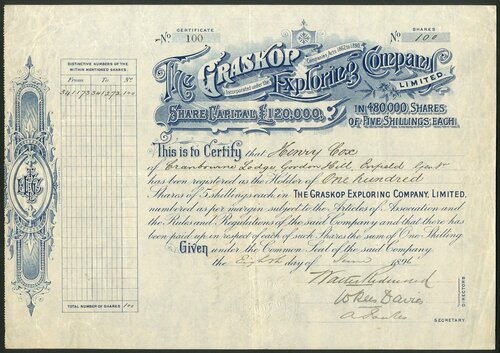 CERTIFICATE
No. 100
SHARES
No. 100
DISTINCTIVE NUMBERS OF THE
WITHIN MENTIONED SHARES.
From To No.
341173 341272 100
The GRASKOP Exploring Company LIMITED.
Incorporated under the Companies Acts 1862 to 1890.
SHARE CAPITAL £120,000,
IN 480,000 SHARES
OF FIVE SHILLINGS EACH.
This is to Certify that Henry Cox
of Cranbourne Lodge Gordon Hill, Enfield Gent
has been registered as the Holder of One hundred
Shares of 5 shillings each in THE GRASKOP EXPLORING COMPANY, LIMITED.
numbered as per margin subject to the Articles of Association and
the Rules and Regulations of the said Company and that there has
been paid up in respect of each of such Shares the sum of One Shilling.
Given under the Common Seal of the said Company
the Eighth day of June
Walter Redmond
W Rees Davies
DIRECTORS
TOTAL NUMBER OF SHARES 100
SECRETARY.